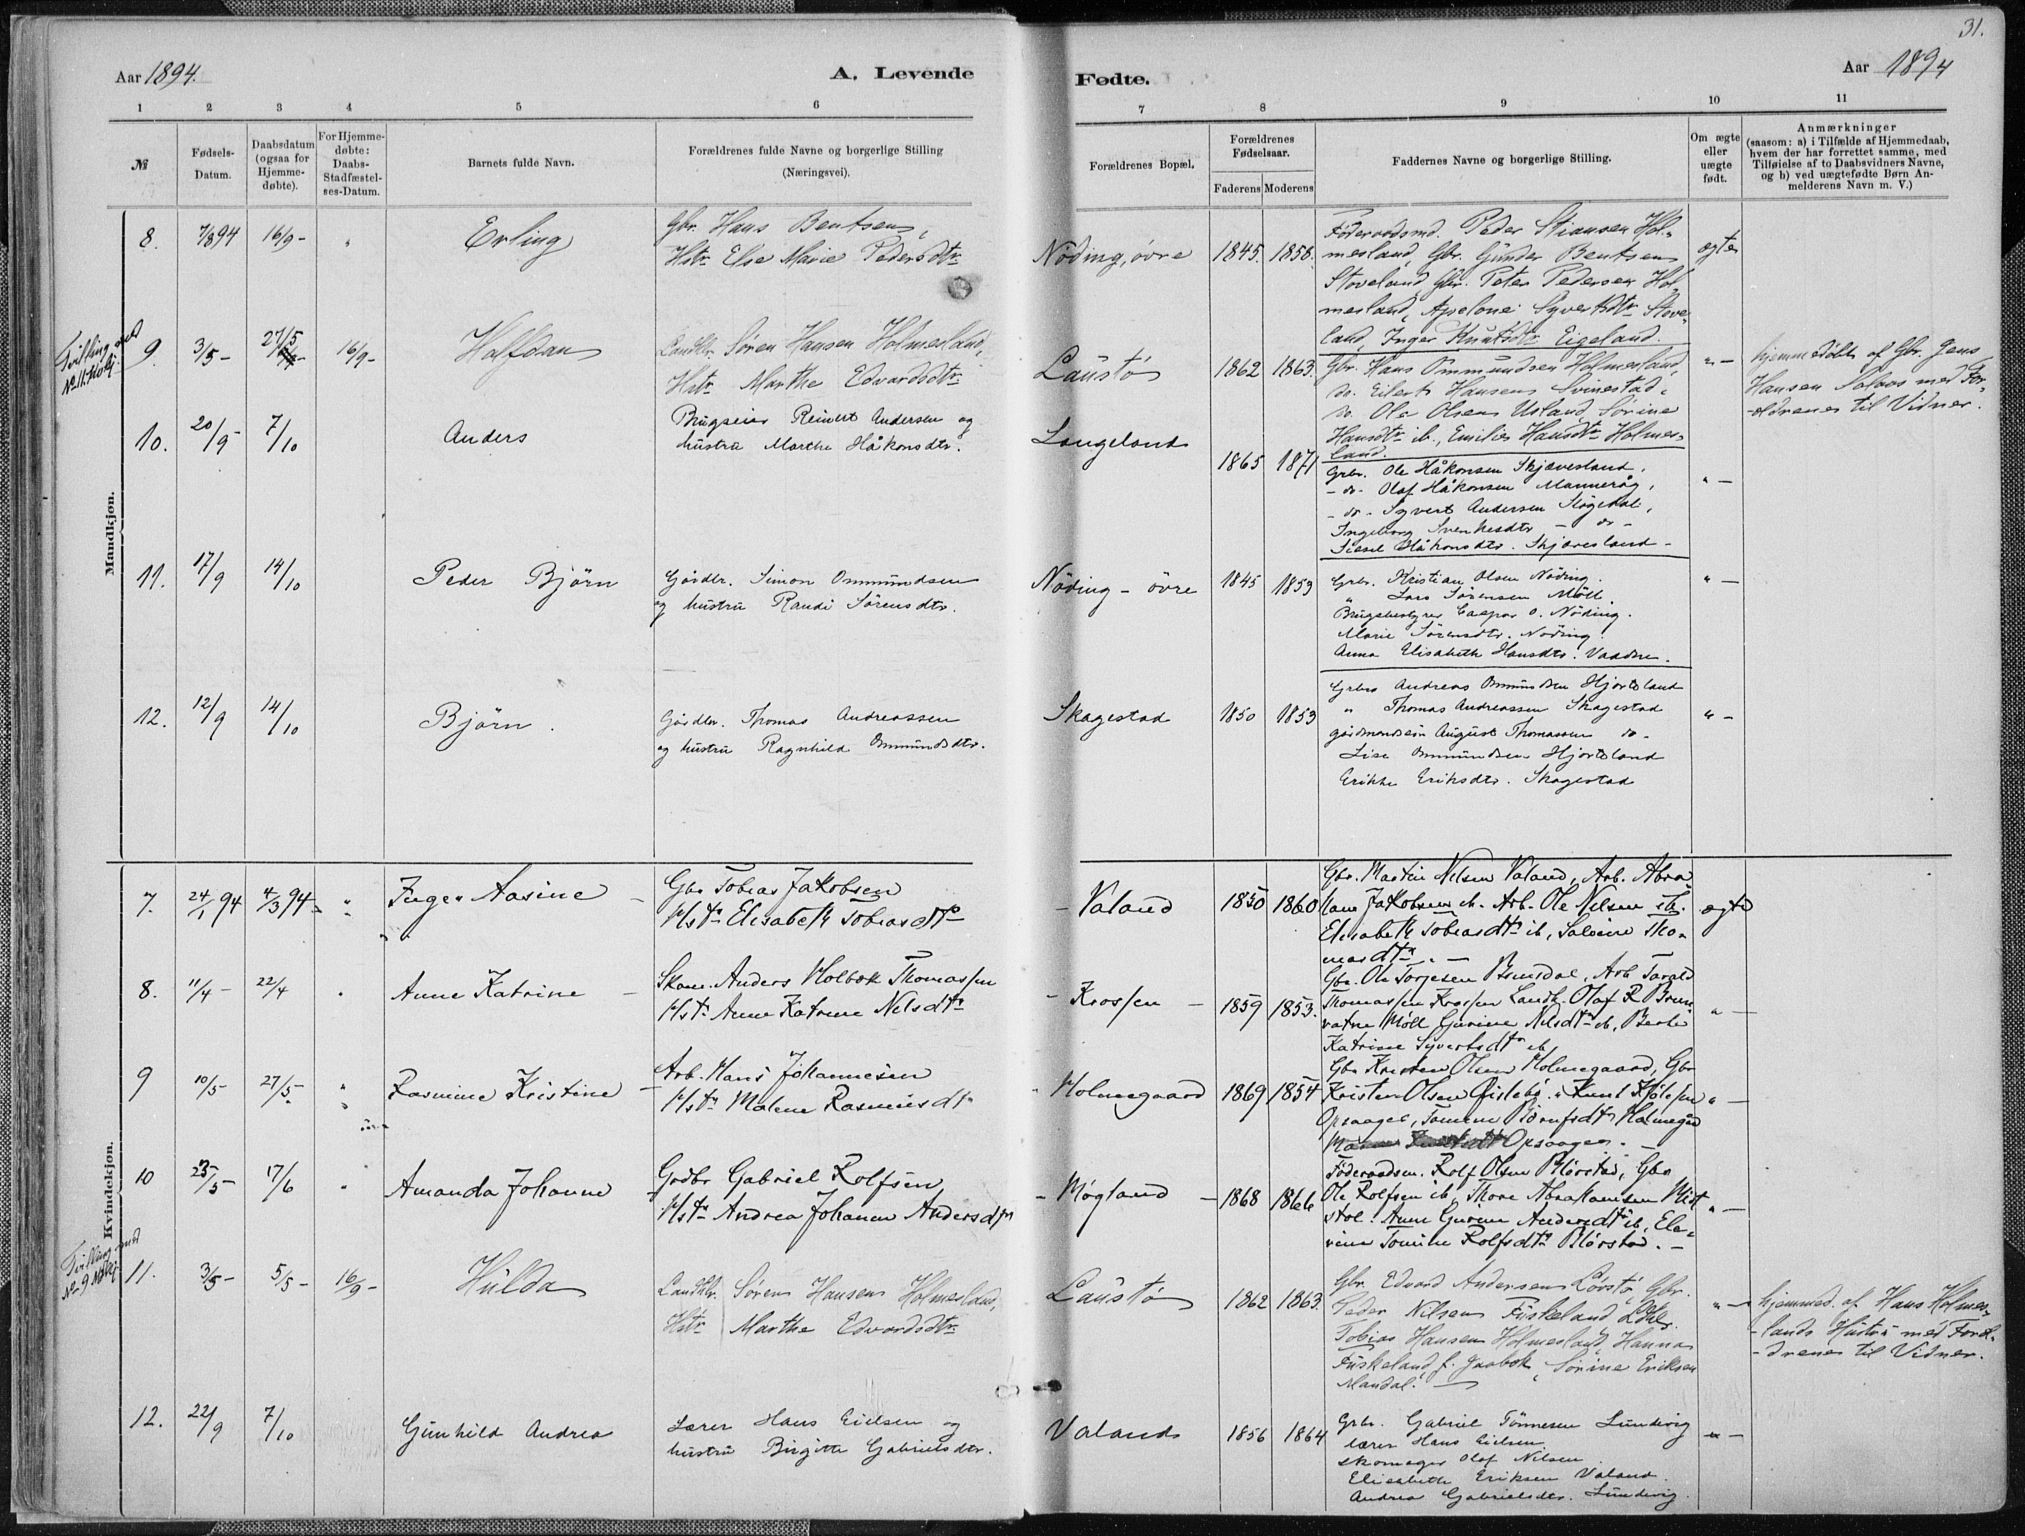 31.
Aar 1894.
A. Levende
Fødte.
Aar 1894
1 2 3 4 5 6
7 8 9 10 11
№
Fødsels-
Datum.
Daabsdatum
(ogsaa for
Hjemme-
døbte).
For Hjemme-
døbte:
Daabs-
Stadfæstel-
ses-Datum.
Barnets fulde Navn.
Forældrenes fulde Navne og borgerlige Stilling
(Næringsvei).
Forældrenes Bopæl.
Forældrenes
Fødselsaar.
Faderens Moderens
Faddernes Navne og borgerlige Stilling.
Om ægte
eller
uægte
født.
Anmærkninger
(saasom: a) i Tilfælde af Hjemmedaab,
hvem der har forrettet samme, med
Tilføielse af to Daabsvidners Navne,
og b) ved uægtefødte Børn An-
melderens Navn m. V.)
Mandkjøn.
8. 7/8 94 16/9 - " Erling
Gbr. Hans Bentsen,
Hstr. Else Marie Pedersdtr.
Nöding, övre 1845. 1858.
Föderaadsmd. Peder Stiansen Hol-
mesland, Gbr. Gunder Bentsen
Stoveland, Gbr. Peter Pedersen Hol-
mesland, Apelone Syvertsdtr. Stove-
land, Inger Knutsdtr. Eigeland.
ægte
Tvilling med
No 11 Kvkj.
9. 3/5 - 27/5 16/9 - Halfdan
Landhlr. Søren Hansen Holmesland,
Hstr. Marthe Edvardsdtr.
Laustö 1862 1863.
Gbr. Hans Ommundsen Holmesland,
do. Eilert Hansen Svinestad,
do. Ole Olsen Usland, Sörine
Hansdtr. ib., Emilie Hansdtr. Holmes-
land.
" -
hjemmedöbt af Gbr. Jens
Hansen med For-
-ældrenes til Vidner.
10. 20/9 - 7/10 Anders
Brugseier Reinert Andersen og
hustru Marthe Håkonsdtr.
Langeland 1865 1871
Grbr. Ole Håkonsen Skjævesland,
- do - Olaf Håkonsen Manneråg,
- do - Syvert Andersen Stögedal,
Ingeborg - do -
Sissel Håkonsdtr. Skjævesland -
" -
11. 17/9 14/10 Peder Björn
Gårdbr. Simon Ommundsen
og hustru Randi Sörensdtr.
Nöding - övre 1845 1853
Grbr. Kristian Olsen Nöding.
" Lars Sörensen Möll.
Brugsbestyrer Caspar O. Nöding.
Marie Sörensdtr. Nöding.
Anna Elisabeth Hansdtr.
" -
12. 12/9 14/10 Björn.
Gårdbr. Thomas Andreassen
og hustru Ragnhild Ommundsdtr.
Skagestad 1850 1853
Grbr. Andreas Ommundsen Hjortsland
" Thomas Andreassen Skagestad
August Thomassen do -
Lise Ommundsen Hjortsland
Erikke Eriksdtr. Skagestad
" -
Kvindekjøn.
7. 24/1 94 4/3 94 " Inger Aasine
Gbr Tobias Jakobsen
Hstr Elisabeth Tobiasdtr
Valand 1850 1860
Gbr. Martin Nilsen Valand, Arb. Abra-
ham Jakobsen ib. Arb. Ole Nilsen ib.
Elisabeth Tobiasdtr ib, Salvine Tho-
masdtr " -
ægte
8. 11/4 - 22/4 " Anne Katrine
Skom. Anders Holbæk Thomassen
Hstr Anne Katrine Nilsdtr
Krossen - 1859 1853.
Gbr. Ole Torjesen Arb Tarald
Thomassen Krossen Landh. Olaf R Brun-
vatne Möll Gurine Nilsdtr ib, Berte
Katrine Syvertsdtr ib
" -
9 10/5 - 27/5 - " Rasmine Kristine
Arb. Hans Johannesen
Hstr Malene Rasmusdtr
Holmegaard 1869 1854
Gbr Kristen Olsen Holmegaard, Gbr
Kristen Olsen Öislebö " Knut
Opsaager, Tomine Holmegrd
Opsaager. -
" -
10 23/5 - 17/6 " Amanda Johanne
Grdbr Gabriel Rolfsen
Hstr Andrea Johanne Andersdtr
Mögland - 1868 1866
Föderaadsm. Rolf Olsen Blörstad, Gbr
Ole Rolfsen ib, Thore Abrahamsen Midt-
stöl. Anne Gurine Andersdtr ib, Ele-
vine Tomine Rolfsdtr Blörstad. -
" -
Tvilling med
No 9 Mdkj.
11. 3/5 - 5/5 - 16/9 - Hulda
Landhlr. Søren Hansen Holmesland,
Hstr. Marthe Edvardsdtr.
Laustö 1862 1863.
Gbr. Edvard Andersen Lövstö, Gbr.
Peder Nilsen Fuskeland, Ldhlr.
Tobias Hansen Holmesland, Hanna
Fuskeland f. Jaabæk, Sörine Eriksen
Mandal. -
" -
hjemmed. af Hans Holmes-
-lands Hustru med Foræl-
-drenes til Vidner.
12. 22/9 7/10 Gunhild Andrea
Lærer Hans Eielsen og
hustru Birgitte Gabrielsdtr.
Valand 1856 1864
Grbr. Gabriel Tönnesen Lundevig
lærer Hans Eielsen
skomager Olaf Nilsen
Elisabeth Eriksen Valand.
Andrea Gabrielsdtr. Lundevig.
" -